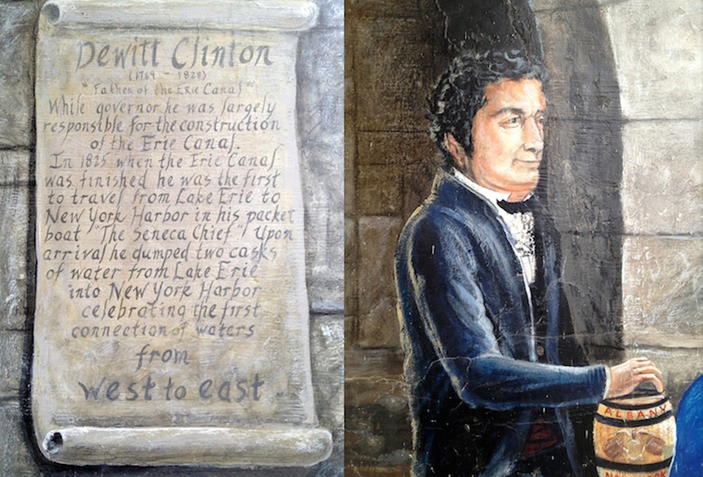 Dewitt Clinton
(1769 - 1828)
"Father of the Erie Canal"
While governor he was largely
responsible for the construction
of the Erie Canal.
In 1825 when the Erie Canal
was finished he was the first
to travel from Lake Erie to
New York Harbor in his packet
boat "The Seneca Chief". Upon
arrival he dumped two casks
of water from Lake Erie
into New York Harbor
celebrating the first
connection of waters
from
west to east
ALBANY